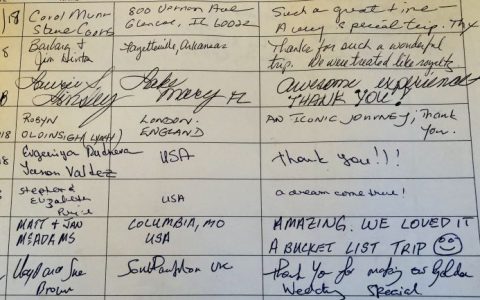 18 Carol Munn 800 Vernon Ave Such a great time
Steve Coors Glencoe, IL 60022 A very special trip. Thx
8 Barbara & Fayetteville, Arkansas Thanks for such a wonderful
Jim Hinton trip. We were treated like royalty
Laurie S. Lake awesome experience
Mary FL THANK YOU!
ROBYN LONDON. AN ICONIC JOURNEY, Thank
18 ENGLAND You.
8 Evgeniya USA thank you!!!
Valdez
Stephen & USA a dream come true!
Elizabeth
MATT & JAN COLUMBIA, MO AMAZING. WE LOVED IT
MCADAMS USA A BUCKET LIST TRIP
Lloyd and Sue Southampton UK Thank You for making our Golden
Brown Wedding Special